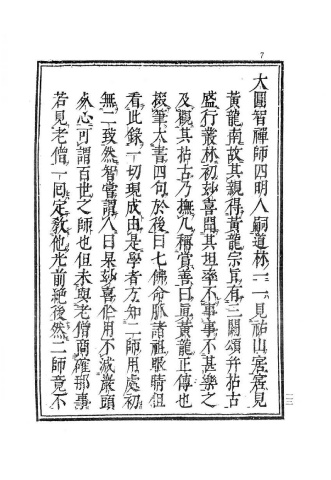 7
大圓智禪師四明人嗣道林一一見祐山密密見
黃龍南故其親得黃龍宗旨有三關頌并拈古
盛行叢林初妙喜聞其坦率不事事不甚樂之
及觀其拈古乃撫几稱賞善曰真黃龍正傳也
掇筆大書四句於後曰七佛命脈諸祖眼睛但
看此錄一切現成由是學者方知二師用處初
無二致然智嘗謂人曰杲妙喜伯用不減巖頭
永心可謂百世之師也但未與老僧商確那事
若見老僧一同定教他光前絕後然二師竟不